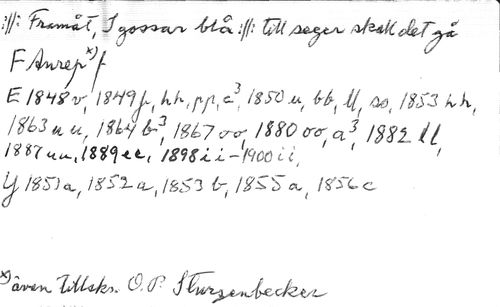 :||: Framåt, I gossar blå :||: till seger skall det gå
F Anrep x) f
E 1848 v, 1849 f, hh, pp, a³, 1850 u, bb, ll, so, 1853 hh,
1863 uu, 1864 b³, 1867 oo, 1880 oo, a³, 1882 ll,
1887 uu, 1889 ee, 1898 ii - 1900 ii,
Y 1851 a, 1852 a, 1853 b, 1855 a, 1856 c
x) även tillskr. O.P. Sturzenbecker